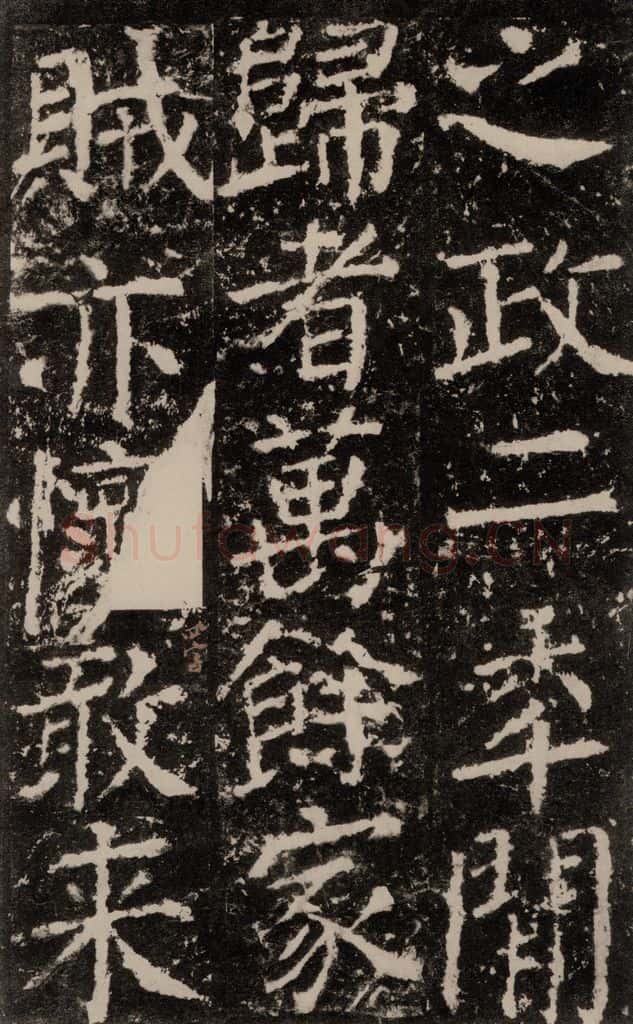 之政二秊閒
歸者萬餘家
賊亦敢来
Shufawang.CN